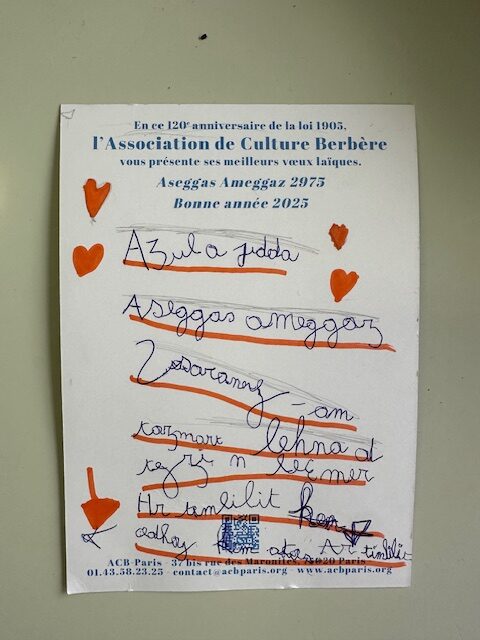 En ce 120e anniversaire de la loi 1905,
l'Association de Culture Berbère
vous présente ses meilleurs vœux laïques.
Aseggas Ameggaz 2975
Bonne année 2025
Azul a jidda
Aseggas ameggaz
-am
tazmart lehna d
n leɛmer
tamlilit
Ar timlilit
ACB-Paris - 37 bis rue des Maronites, 75020 Paris
01.43.58.23.25 - contact@acbparis.org - www.acbparis.org